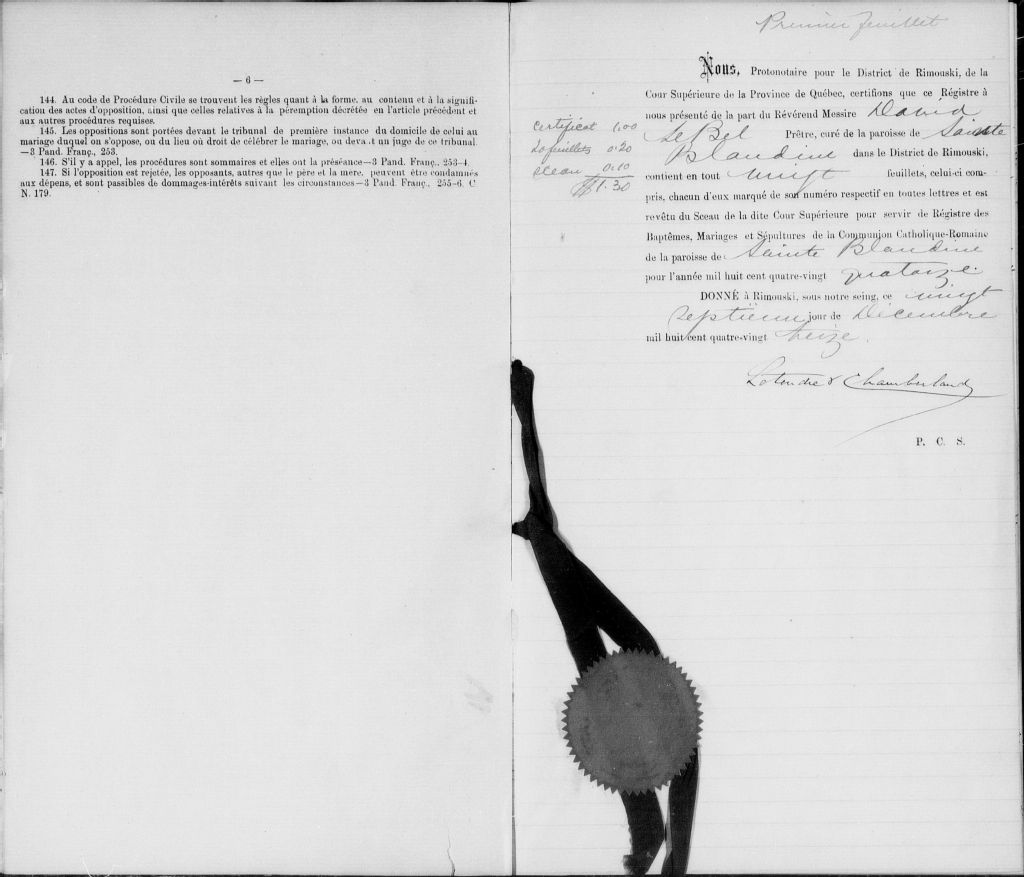 — 6 —
144. Au code de Procédure Civile se trouvent les règles quant à la forme, au contenu et à la signifi-
cation des actes d'opposition, ainsi que celles relatives à la péremption décrétée en l'article précédent et
aux autres procédures requises.
145. Les oppositions sont portées devant le tribunal de première instance du domicile de celui au
mariage duquel on s'oppose, ou du lieu où droit de célébrer le mariage, ou deva.t un juge de ce tribunal.
—3 Pand. Franç., 253.
146. S'il y a appel, les procédures sont sommaires et elles ont la préséance—3 Pand. Franç., 253-4.
147. Si l'opposition est rejetée, les opposants, autres que le père et la mère, peuvent être condamnés
aux dépens, et sont passibles de dommages-intérêts suivant les circonstances—3 Pand. Franç., 255-6. C
N. 179.
Premier feuillet
Nous, Protonotaire pour le District de Rimouski, de la
Cour Supérieure de la Province de Québec, certifions que ce Régistre à
nous présenté de la part du Révérend Messire David
LeBel Prêtre, curé de la paroisse de Sainte
Blandine dans le District de Rimouski,
contient en tout vingt feuillets, celui-ci com-
pris, chacun d'eux marqué de son numéro respectif en toutes lettres et est
revêtu du Sceau de la dite Cour Supérieure pour servir de Régistre des
Baptêmes, Mariages et Sépultures de la Communion Catholique-Romaine
de la paroisse de Sainte Blandine
pour l'année mil huit cent quatre-vingt quatorze.
DONNÉ à Rimouski, sous notre seing, ce vingt
septième jour de Décembre
mil huit cent quatre-vingt treize.
Letendre & Chamberland
P. C. S.
certificat 1.00
20 feuillets 0.20
sceau 0.10
$1.30